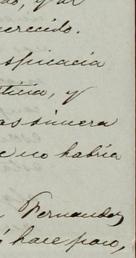 erecido.
spicacia
ticia, y
assinera
e no habria
Fernandez
hace poco,